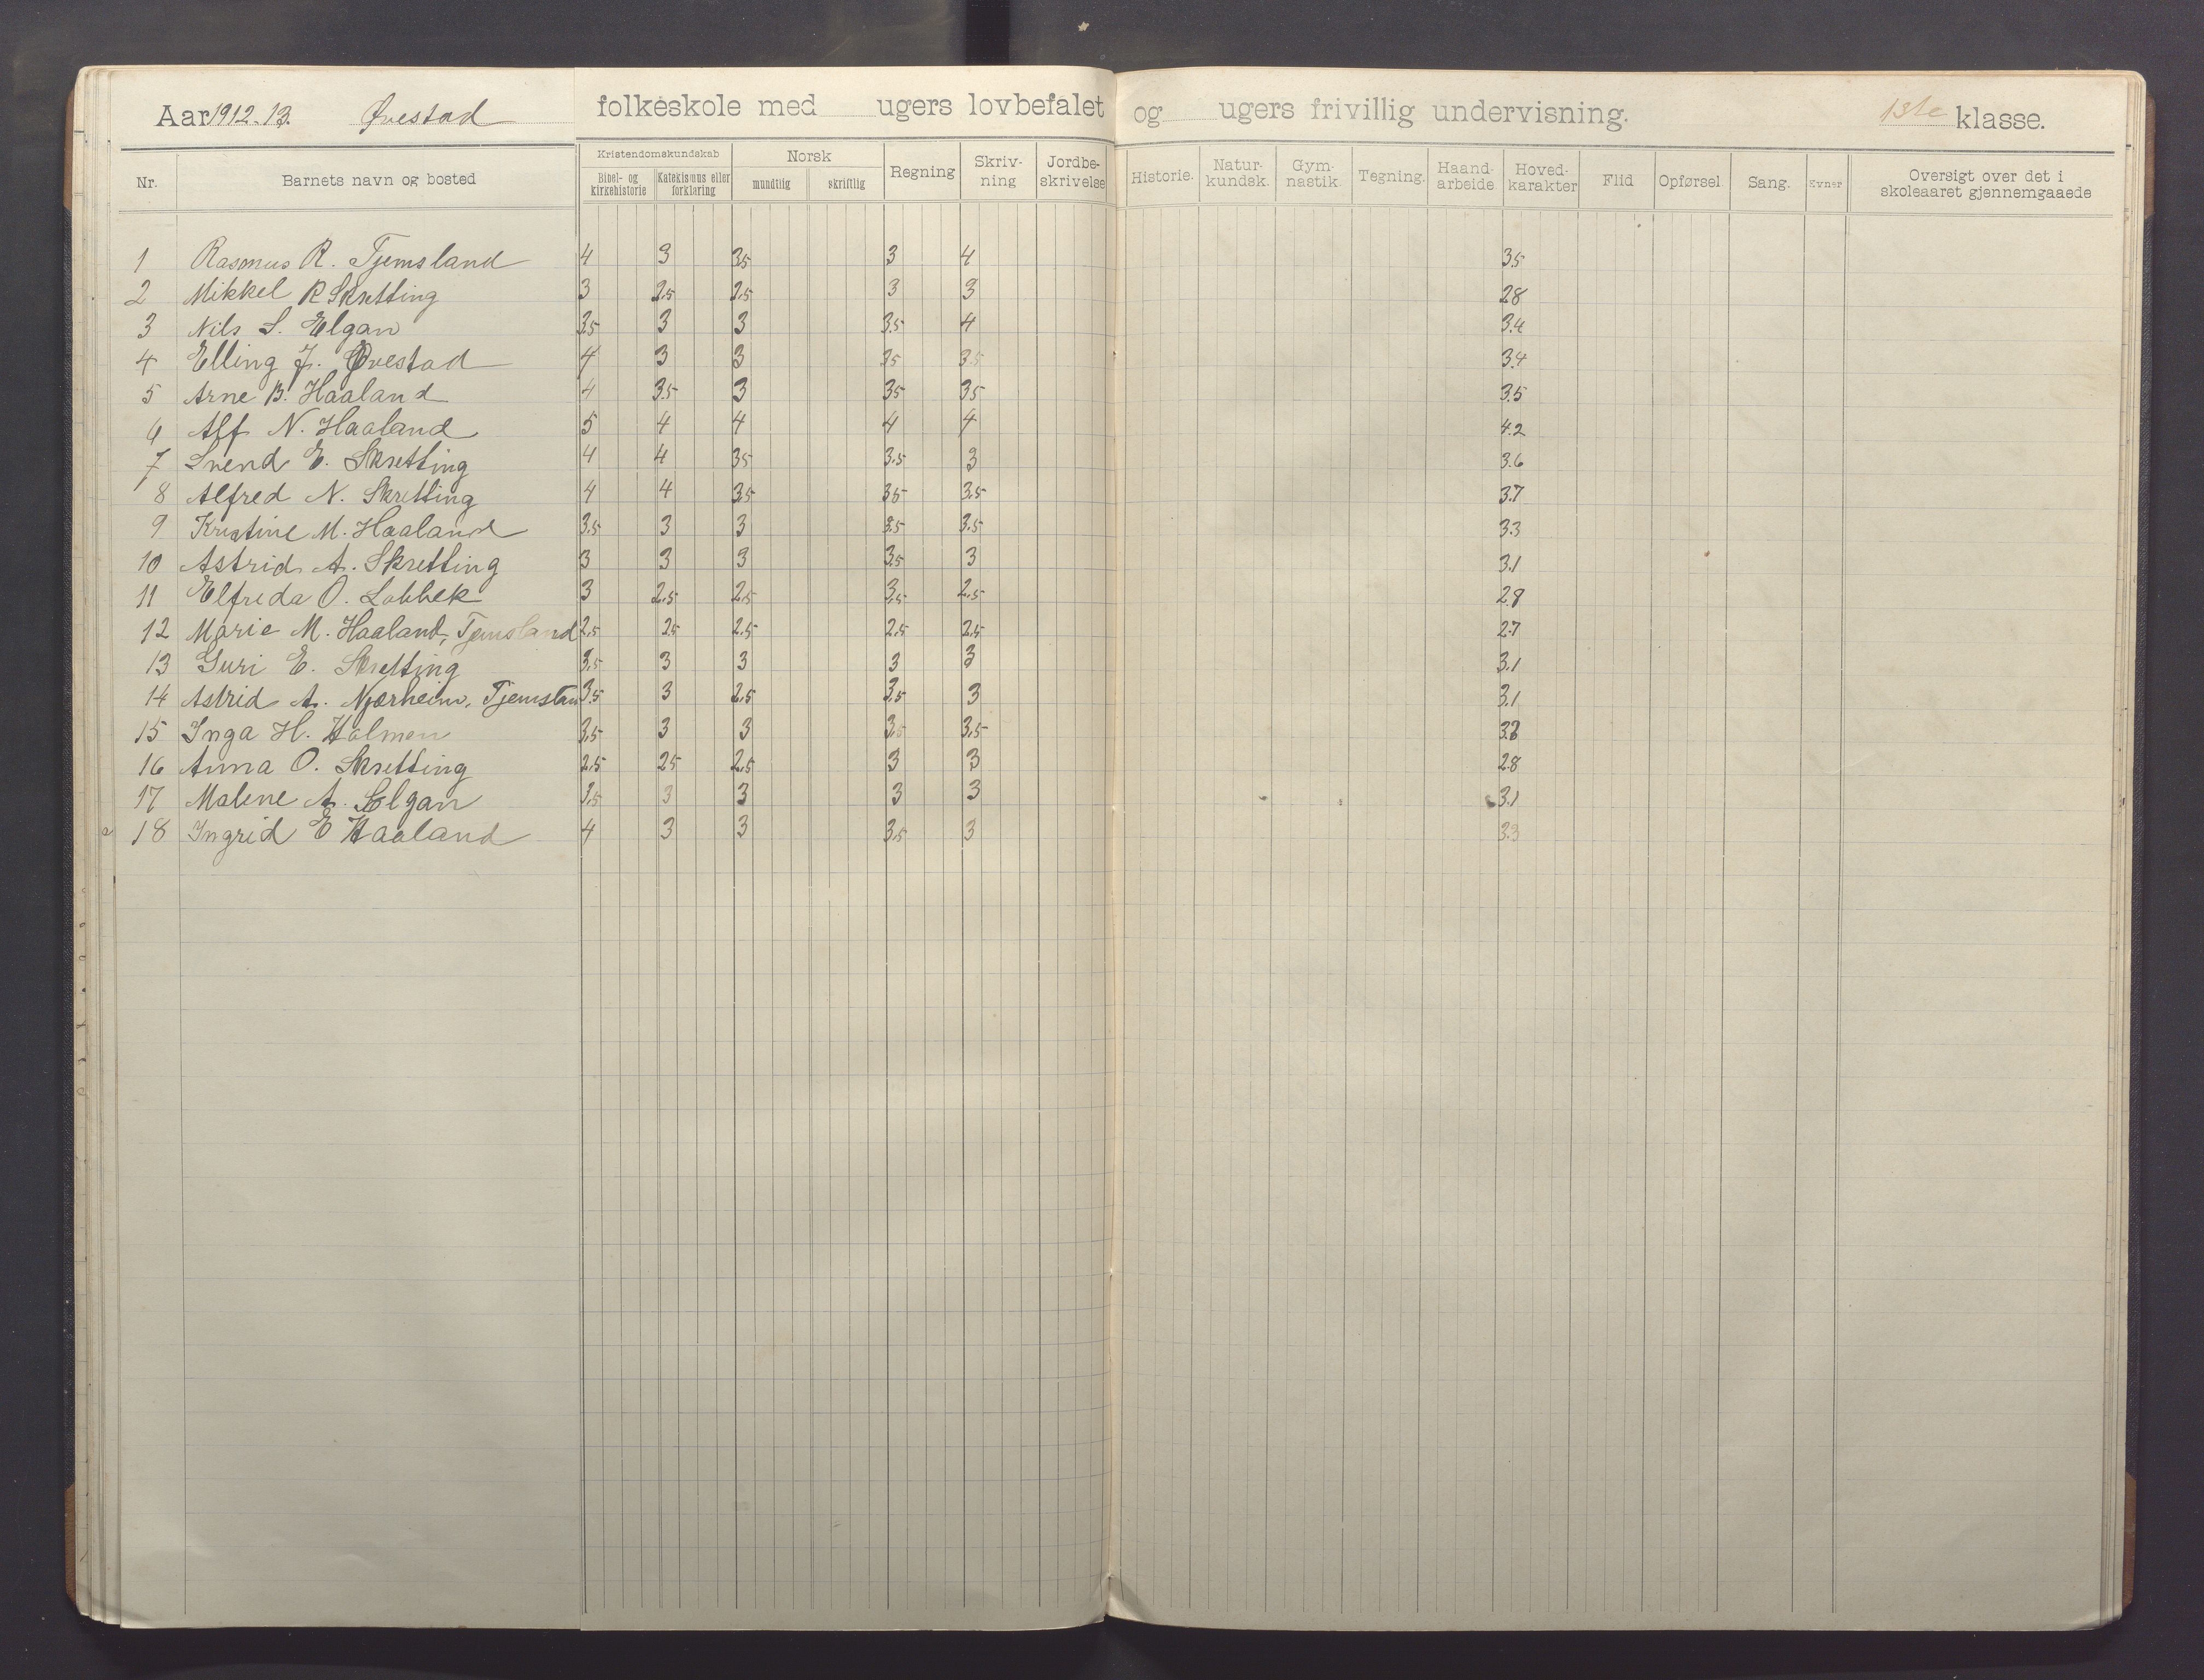 Aar 1912-13. Øvestad folkeskole med ugers lovbefalet og ugers frivillig undervisning. 1ste klasse.
Nr. Barnets navn og bosted Kristendomskundskab Bibel- og kirkehistorie Katekismus eller forklaring Norsk mundtlig skriftlig Regning Skriv-ning Jordbe-skrivelse Historie. Natur-kundsk. Gym-nastik. Tegning. Haand-arbeide. Hoved-karakter Flid Opførsel. Sang. Evner Oversigt over det i skoleaaret gjennemgaaede
1 Rasmus R. Tjemsland 4 3 3.5 3 4 3.5
2 Mikkel R Skretting 3 2.5 2.5 3 3 2.8
3 Nils S. Elgan 3.5 3 3 3.5 4 3.4
4 Elling J. Øvestad 4 3 3 3.5 3.5 3.4
5 Arne B. Haaland 4 3.5 3 3.5 3.5 3.5
6 Alf N. Haaland 5 4 4 4 4 4.2
7 Svend E. Skretting 4 4 3.5 3.5 3 3.6
8 Alfred N. Skretting 4 4 3.5 3.5 3.5 3.7
9 Kristine M. Haaland 3.5 3 3 3.5 3.5 3.3
10 Astrid A. Skretting 3 3 3 3.5 3 3.1
11 Elfreda O. 3 2.5 2.5 3.5 2.5 2.8
12 Marie M. Haaland, Tjemsland 2.5 2.5 2.5 2.5 2.5 2.7
13 Guri E. Skretting 3.5 3 3 3 3 3.1
14 Astrid A. Njærheim, Tjemslan 3.5 3 2.5 3.5 3 3.1
15 Inga H. Holmen 3.5 3 3 3.5 3.5 3.3
16 Anna O. Skretting 2.5 2.5 2.5 3 3 2.8
17 Malene A. Elgan 3.5 3 3 3 3 3.1
18 Ingrid E Haaland 4 3 3 3.5 3 3.3